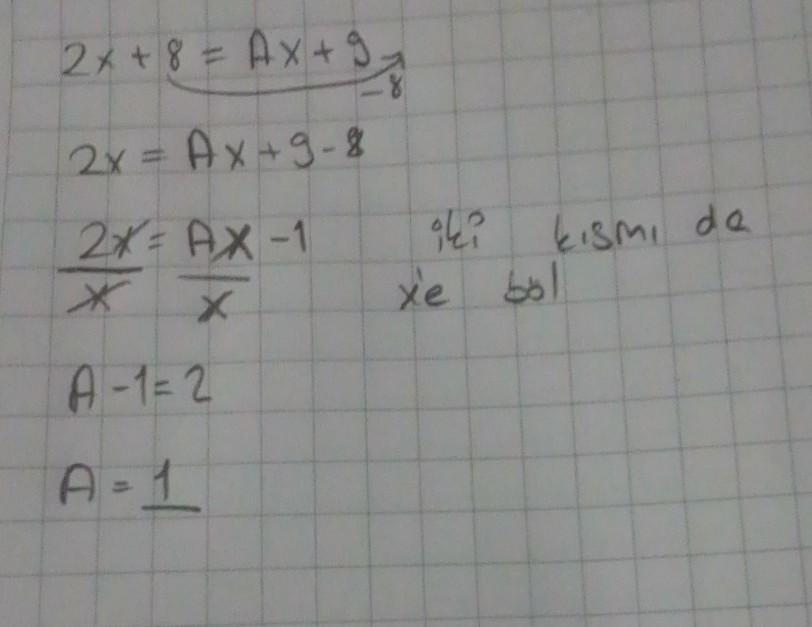 2x + 8 = Ax + 9
-8
2x = Ax + 9 - 8
2x = Ax - 1 iki kısmı da
x x x'e böl
A - 1 = 2
A = 1